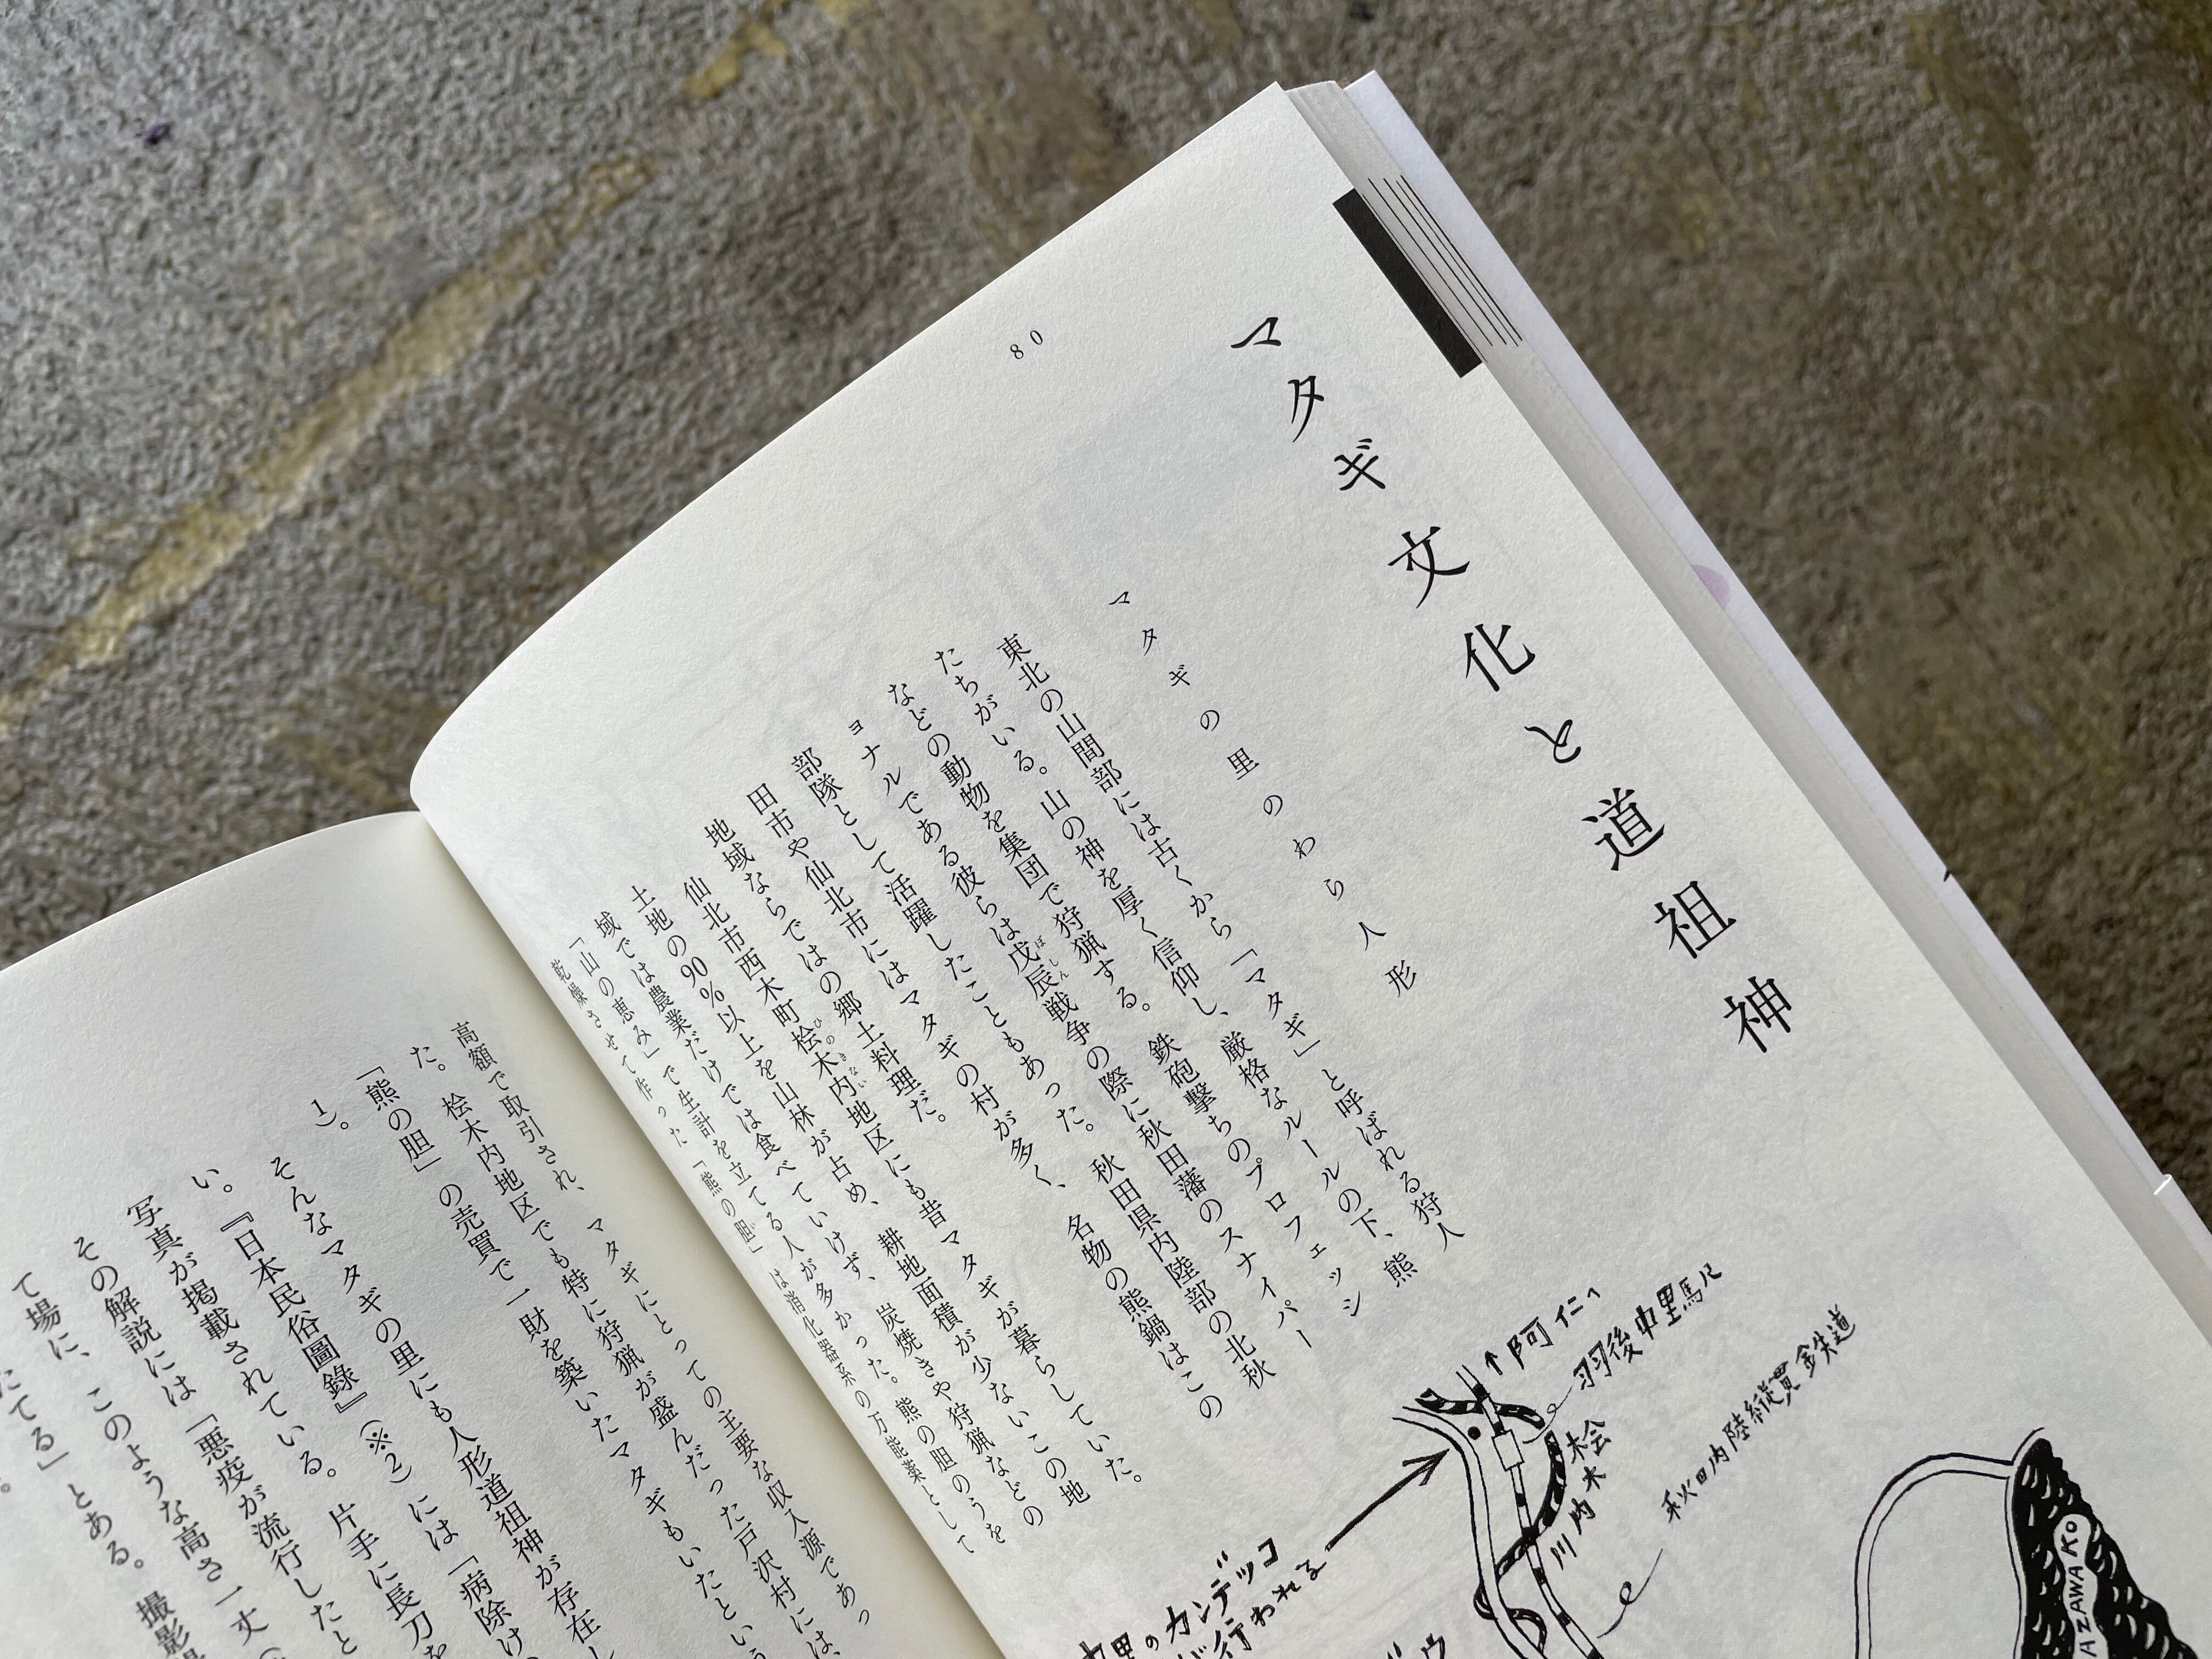 80
マタギ文化と道祖神
マタギの里のわら人形
東北の山間部には古くから「マタギ」と呼ばれる狩人
たちがいる。山の神を厚く信仰し、厳格なルールの下、熊
などの動物を集団で狩猟する。鉄砲撃ちのプロフェッシ
ョナルである彼らは戊辰戦争の際に秋田藩のスナイパー
ぼしん
部隊として活躍したこともあった。秋田県内陸部の北秋
田市や仙北市にはマタギの村が多く、名物の熊鍋はこの
地域ならではの郷土料理だ。
仙北市西木町桧木内地区にも昔マタギが暮らしていた。
ひのきない
土地の90%以上を山林が占め、耕地面積が少ないこの地
域では農業だけでは食べていけず、炭焼きや狩猟などの
「山の恵み」で生計を立てる人が多かった。熊の胆のうを
乾燥させて作った「熊の胆」は消化器系の万能薬として
高額で取引され、マタギにとっての主要な収入源であっ
た。桧木内地区でも特に狩猟が盛んだった戸沢村には、
「熊の胆」の売買で一財を築いたマタギもいたという
1)。
そんなマタギの里にも人形道祖神が存在し
い。『日本民俗圖錄』(※2)には「病除け
写真が掲載されている。片手に長刀を
その解説には「悪疫が流行したと
て場に、このような高さ一丈
たてる」とある。撮影
↑阿仁へ
羽後中里駅
桧木内川
秋田内陸縦貫鉄道
中里のカンデッコ
が行われる
AZAWAKO